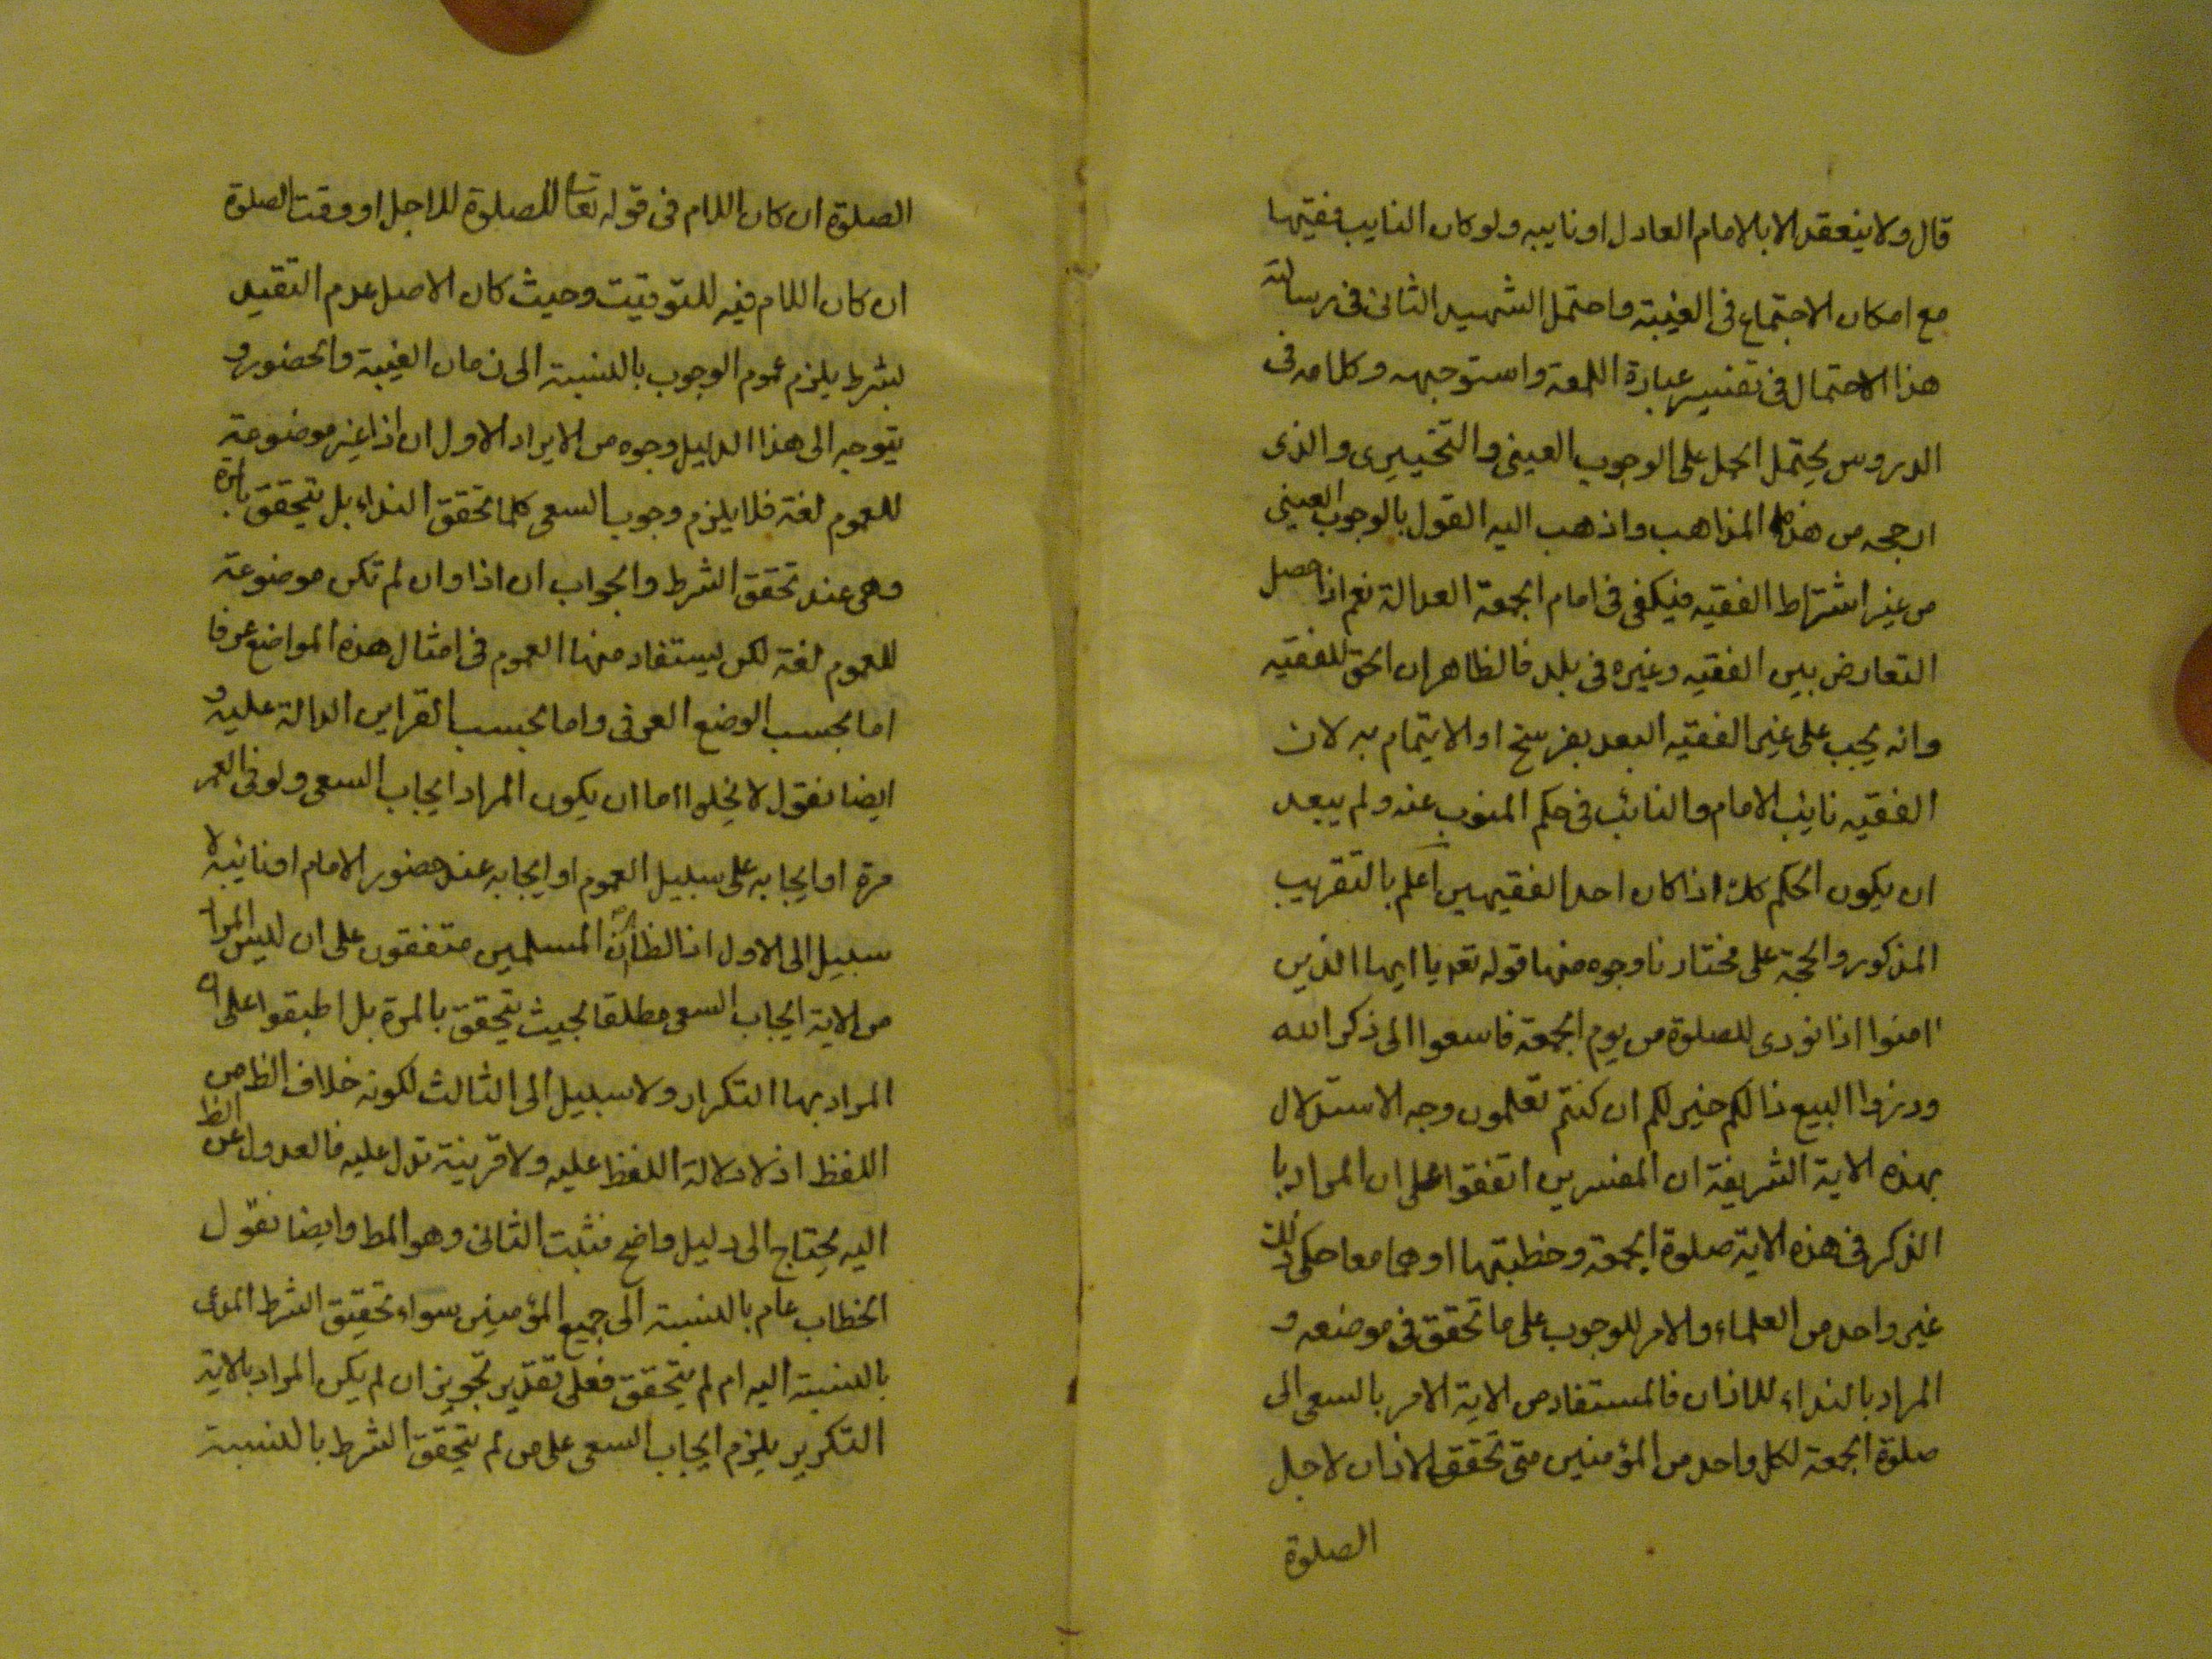 قال ولا ينعقد الا بالامام العادل او نايبه ولو كان النايب فقيها
مع امكان الاجتماع فى الغيبة واحتمل الشهيد الثانى فى رسالته
هذا الاحتمال فى تفسير عبارة اللمعة واستوجهه وكلامه فى
الدروس يحتمل الحمل على الوجوب العينى والتخييرى والذى
ارجحه من هذه المذاهب واذهب اليه القول بالوجوب العينى
من غير اشتراط الفقيه فيكفى فى امام الجمعة العدالة نعم اذا حصل
التعارض بين الفقيه وغيره فى بلد فالظاهر ان الحق للفقيه
وانه يجب على غير الفقيه البعد بفرسخ او الايتمام به لان
الفقيه نايب الامام والنائب فى حكم المنوب عنه ولم يبعد
ان يكون الحكم كك اذا كان احد الفقيهين اعلم بالتقريب
المذكور والحجة على مختارنا وجوه منها قوله تعه يا ايها الذين
امنوا اذا نودى للصلوة من يوم الجمعة فاسعوا الى ذكر الله
وذروا البيع ذالكم خير لكم ان كنتم تعلمون وجه الاستدلال
بهذه الاية الشريفة ان المفسرين اتفقوا على ان المراد با
الذكر فى هذه الاية صلوة الجمعة وخطبتها او هما معا حكى ذلك
غير واحد من العلماء والامر للوجوب على ما تحقق فى موضعه و
المراد بالنداء للاذان فالمستفاد من الاية الامر بالسعى الى
صلوة الجمعة لكل واحد من المؤمنين متى تحقق الاذان لاجل
الصلوة
الصلوة ان كان اللام فى قوله تعا للصلوة للاجل او وقت الصلوة
ان كان اللام فيه للتوقيت وحيث كان الاصل عدم التقيد
بشرط يلزم عموم الوجوب بالنسبة الى زمان الغيبة والحضور و
يتوجه الى هذا الدليل وجوه من الايراد الاول ان اذا غير موضوعة
للعموم لغة فلا يلزم وجوب السعى كلما تحقق النداء بل يتحقق بالمرة
وهى عند تحقق الشرط والجواب ان اذا وان لم تكن موضوعة
للعموم لغة لكن يستفاد منها العموم فى امثال هذه المواضع عرفا
اما بحسب الوضع العرفى واما بحسب القراين الدالة عليه و
ايضا نقول لا يخلوا اما ان يكون المراد ايجاب السعى ولو فى العمر
مرة او ايجابه على سبيل العموم او ايجابه عند حضور الامام او نائبه لا
سبيل الى الاول اذ الظ ان المسلمين متفقون على ان ليس المراد
من الاية ايجاب السعى مطلقا بحيث يتحقق بالمرة بل اطبقوا على ان
المراد بها التكرار ولا سبيل الى الثالث لكونه خلاف الظ من
اللفظ اذ لا دلالة اللفظ عليه ولا قرينة تدل عليه فالعدول عن الظ
اليه يحتاج الى دليل واضح فثبت الثانى وهو المط وايضا نقول
الخطاب عام بالنسبة الى جميع المؤمنين سواء تحقيق الشرط المدعى
بالنسبة اليه ام لم يتحقق فعلى تقدير تجويز ان لم يكن المراد بالاية
التكرير يلزم ايجاب السعى على من لم يتحقق الشرط بالنسبة